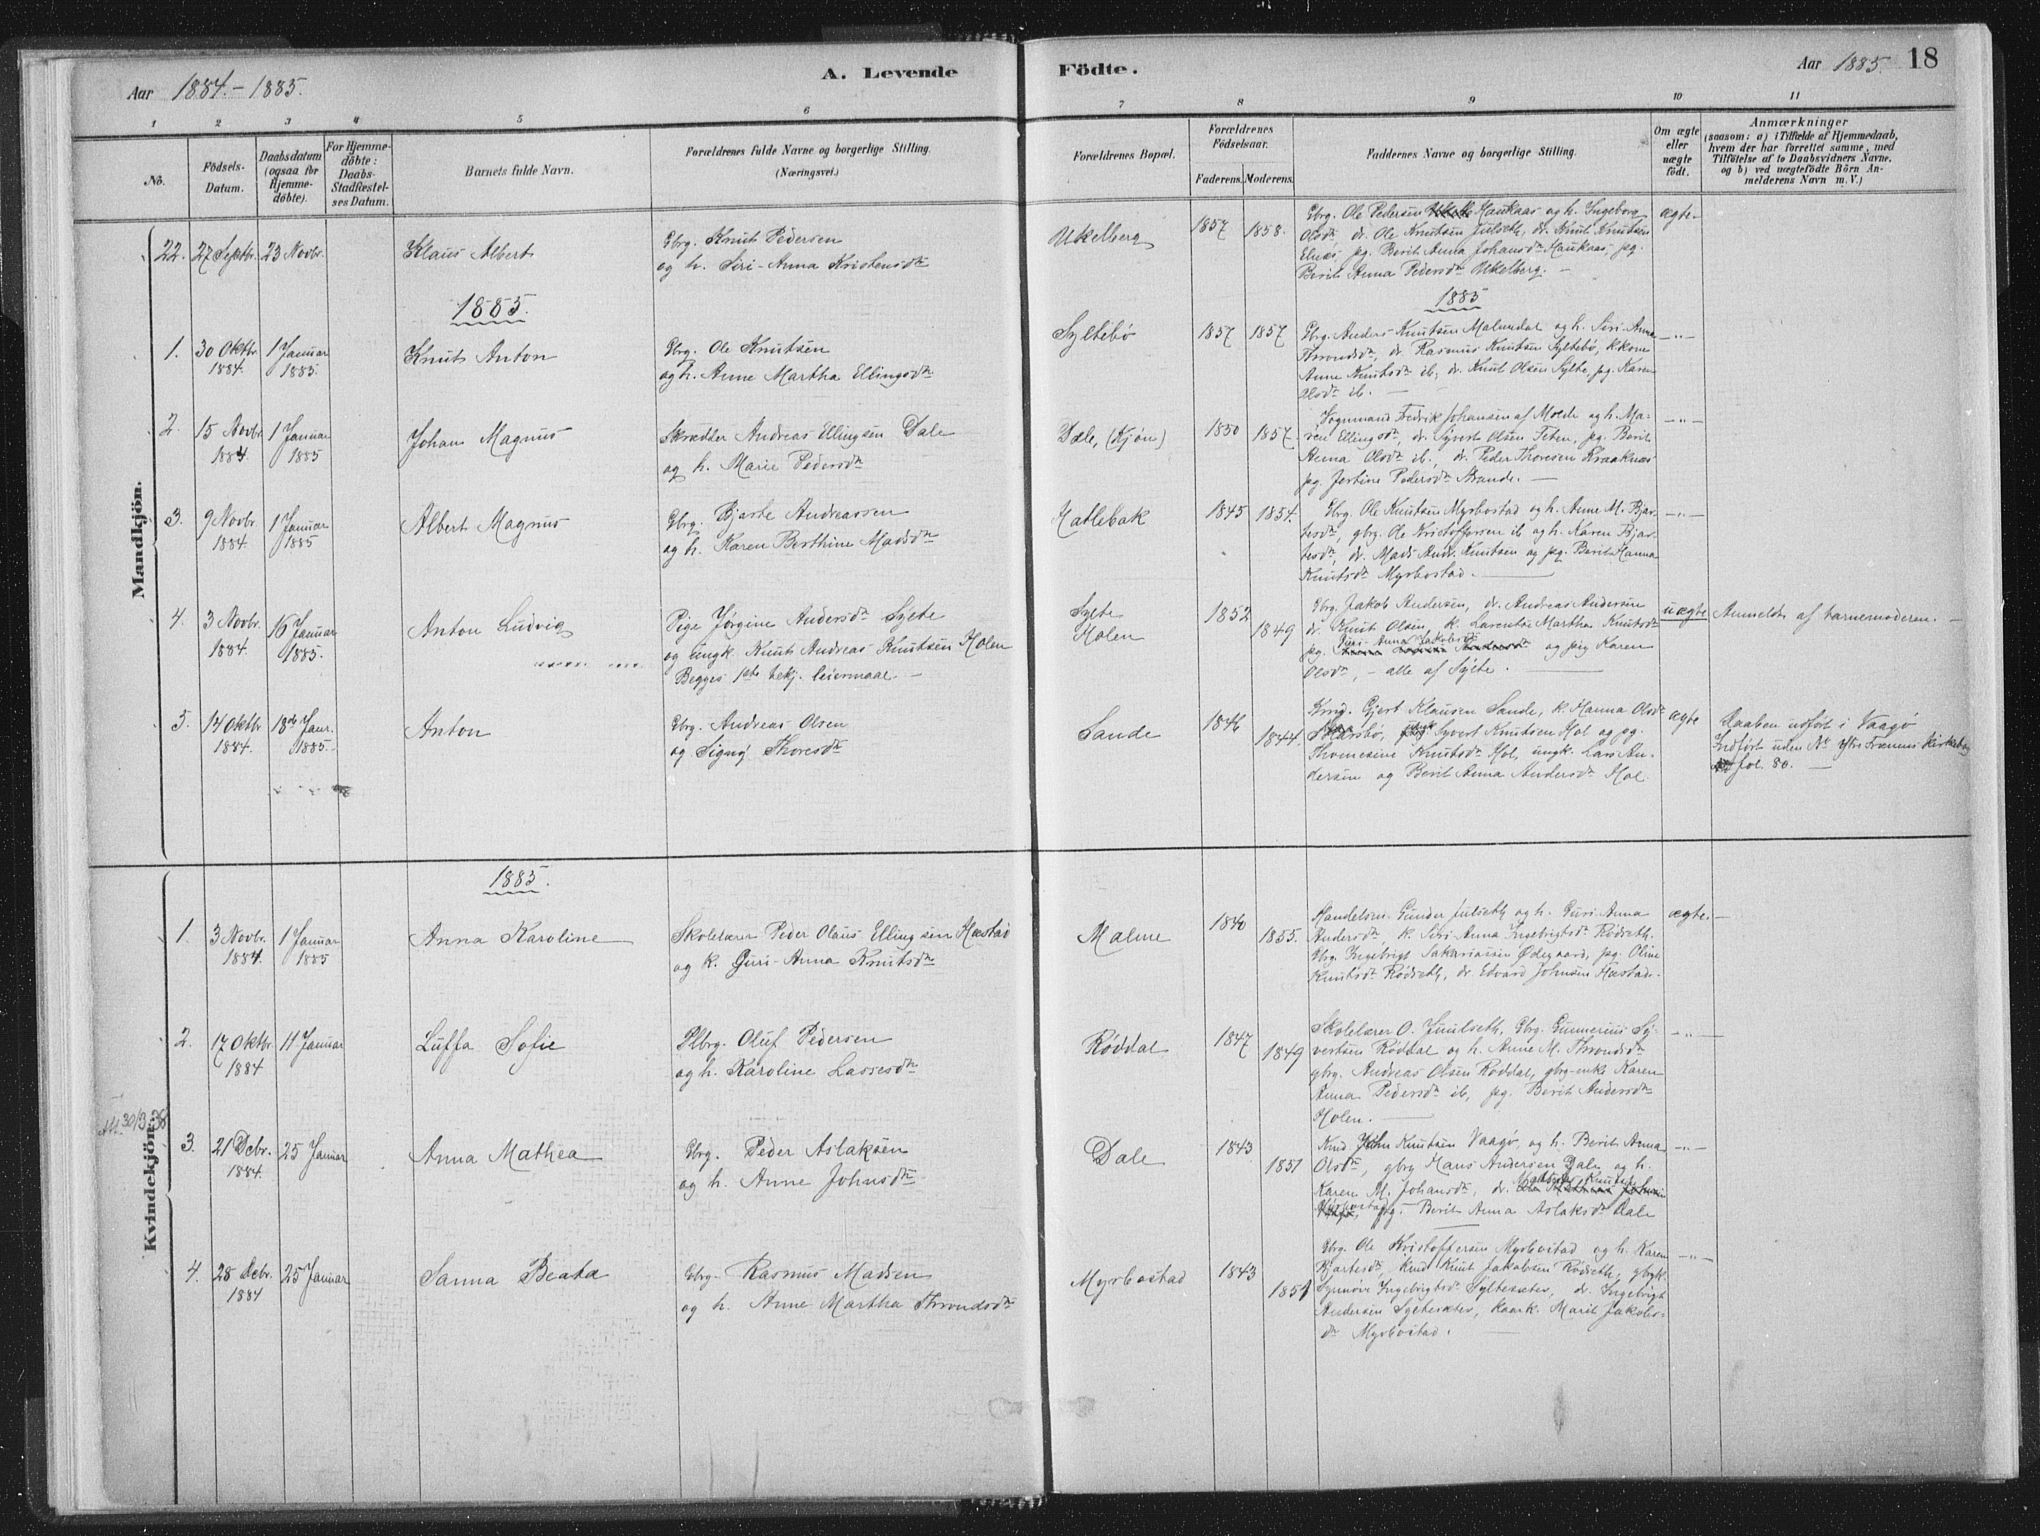 Aar 1884.-1885.
A. Levende
Födte.
Aar 1885.
18
1 2 3 4 5 6 7 8 9 10 11
No.
Födsels-Datum.
Daabsdatum (ogsaa for Hjemmedöbte).
For Hjemmedöbte: Daabs-Stadfæstelses Datum.
Barnets fulde Navn.
Forældrenes fulde Navne og borgerlige Stilling. (Næringsvei.)
Forældrenes Bopæl.
Forældrenes Födselsaar.
Faderens. Moderens.
Faddernes Navne og borgerlige Stilling.
Om ægte eller uægte födt.
Anmærkninger
(saasom: a) i Tilfælde af Hjemmedaab, hvem der har forrettet samme, med Tilföielse af to Daabsvidners Navne, og b) ved uægtefödte Börn Anmelderens Navn m. V.)
Mandkjön.
22. 27 Septbr. 23 Novbr. Klaus Albert
Gbrg. Knut Pedersen
og h. Siri-Anna Kristensdtr
Ukelberg 1857 1858.
Gbrg. Ole Pedersen Haukaas og h. Ingeborg
Olsdtr dr. Ole Knutsen Julseth, dr. Knut Knutsen
Elnæs, pg. Berit Anna Johansdtr Haukaas, pg.
Berit Anna Pedersdtr Ukelberg. -
ægte-
1885.
1885
1. 30 Oktbr. 1884. 1 Januar 1885. Knut Anton
Gbrg. Ole Knutsen
og h. Anne Martha Ellingsdtr
Syltebø 1857 1857
Gbrg. Anders Knutsen Malmedal og h. Siri-Anna
Throndsdtr, dr. Rasmus Knutsen Syltebø, kkone
Anne Knutsdtr ib., dr. Knut Olsen Sylte, pg. Karen
Olsdtr ib. -
-"-
2. 15 Novbr. 1884. 1 Januar 1885 Johan Magnus
Skrædder Andreas Ellingsen Dale
og h. Marie Pedersdtr
Dale, (Kjøn) 1850 1857.
Vognmand Fredrik Johansen af Molde og h. Ma-
ren Ellingsdtr, dr. Syvert Olsen Teten, pg. Berit
Anna Olsdtr ib., dr. Peder Thoresen Kraaknæs
pg. Jertine Pedersdtr Strande. -
-"-
3. 9 Novbr. 1884. 1 Januar 1885 Albert Magnus
Gbrg. Bjarte Andreassen
og h. Karen Berthine Madsdtr
Hatlebak 1845 1854.
Gbrg. Ole Knutsen Myrbostad og h. Anne M. Bjar-
tesdtr, gbrg. Ole Kristoffersen ib og h. Karen Bjar-
tesdtr, dr. Mads Andr. Knutsen og pg. Berit Hanna
Knutsdtr Myrbostad. -
-"-
4. 3 Novbr. 1884. 16 Januar 1885. Anton Ludvig
Pige Jørgine Andersdtr Sylte
og ungk. Knut Andreas Knutsen Holen
Begges 1ste bekj. leiermaal. -
Sylte
Holen
1852 1849
Gbrg. Jakob Andersen, dr. Andreas Andersen
dr. Knut Olsen, k. Laventse Martha Knutsdtr
pg. Guri-Anna Jakobsdtr og pig Karen
Olsdtr, - alle af Sylte. -
uægte
Anmeldt af barnemoderen. -
5. 14 Oktbr 1884. 18de Janr. 1885. Anton
Gbrg. Andreas Olsen
og Signij Thoresdtr
Sande 1846 1844.
Gjert Klausen Sande, k. Hanna Olsdtr
Syvert Knutsen Hol og pg.
Thomesine Knutsdtr Hol, ungk. Lars An-
dersen og Berit Anna Andersdtr Hol
ægte
Daaben udført i Vaagø
Indført uden No Ytre Frænens Kirkebog
fol. 80. -
Kvindekjön.
1885.
1. 3 Novbr. 1884. 1 Januar 1885 Anna Karoline
Skolelærer Peder Olaus Ellingsen Hustad
og k. Guri-Anna Knutsdtr
Malme 1840 1855.
Handelsm. Gunder Julseth og h. Guri-Anna
Andersdtr, k. Siri-Anna Ingebrigtsdtr Rødseth
Gbrg. Ingebrigt Sakariassen Ødegaard, pg. Oline
Knutsdtr Rødseth, dr. Edvard Johnsen Hustad.
ægte. -
2. 17 Oktbr. 1884 11 Januar Luffa Sofie
Plbrg. Oluf Pedersen
og h. Karoline Lassesdtr
Røddal 1847 1849
Skolelærer O. Julseth, Gbrg. Gunnerius Sy-
vertsen Røddal og h. Anne M. Throndsdtr
gbrg. Andreas Olsen Røddal, gbrg-enke Karen
Anna Pedersdtr ib, pg. Berit Andersdtr
Holen. -
-"-
Att. 30/3-38
3. 21 Debr. 1884. 25 Januar Anna Mathea
Gbrg. Peder Aslaksen
og h. Anne Johnsdtr
Dale 1843 1851
Kmd John Knutsen Vaagø, og h. Berit Anna
Olsdtr, gbrg Hans Andersen Dale og h.
Karen M. Johansdtr, dr. Mathias Knutsen
Myrbostad, pg. Berit Anna Aslaksdtr Dale
-"-
4. 28 Debr. 1884 25 Januar Sanna Beata
Gbrg. Rasmus Madsen
og h. Anne Martha Throndsdtr
Myrbostad 1843 1851
Gbrg. Ole Kristoffersen Myrbostad og h. Karen
Bjartesdtr, kmd Knut Jakobsen Rødseth, gbrgk.
Synnøve Ingebrigtsdtr Syltesæter, dr. Ingebrigt
Andersen Syltesæter, kaark. Marit Jakobs-
dtr Myrbostad. -
-"-